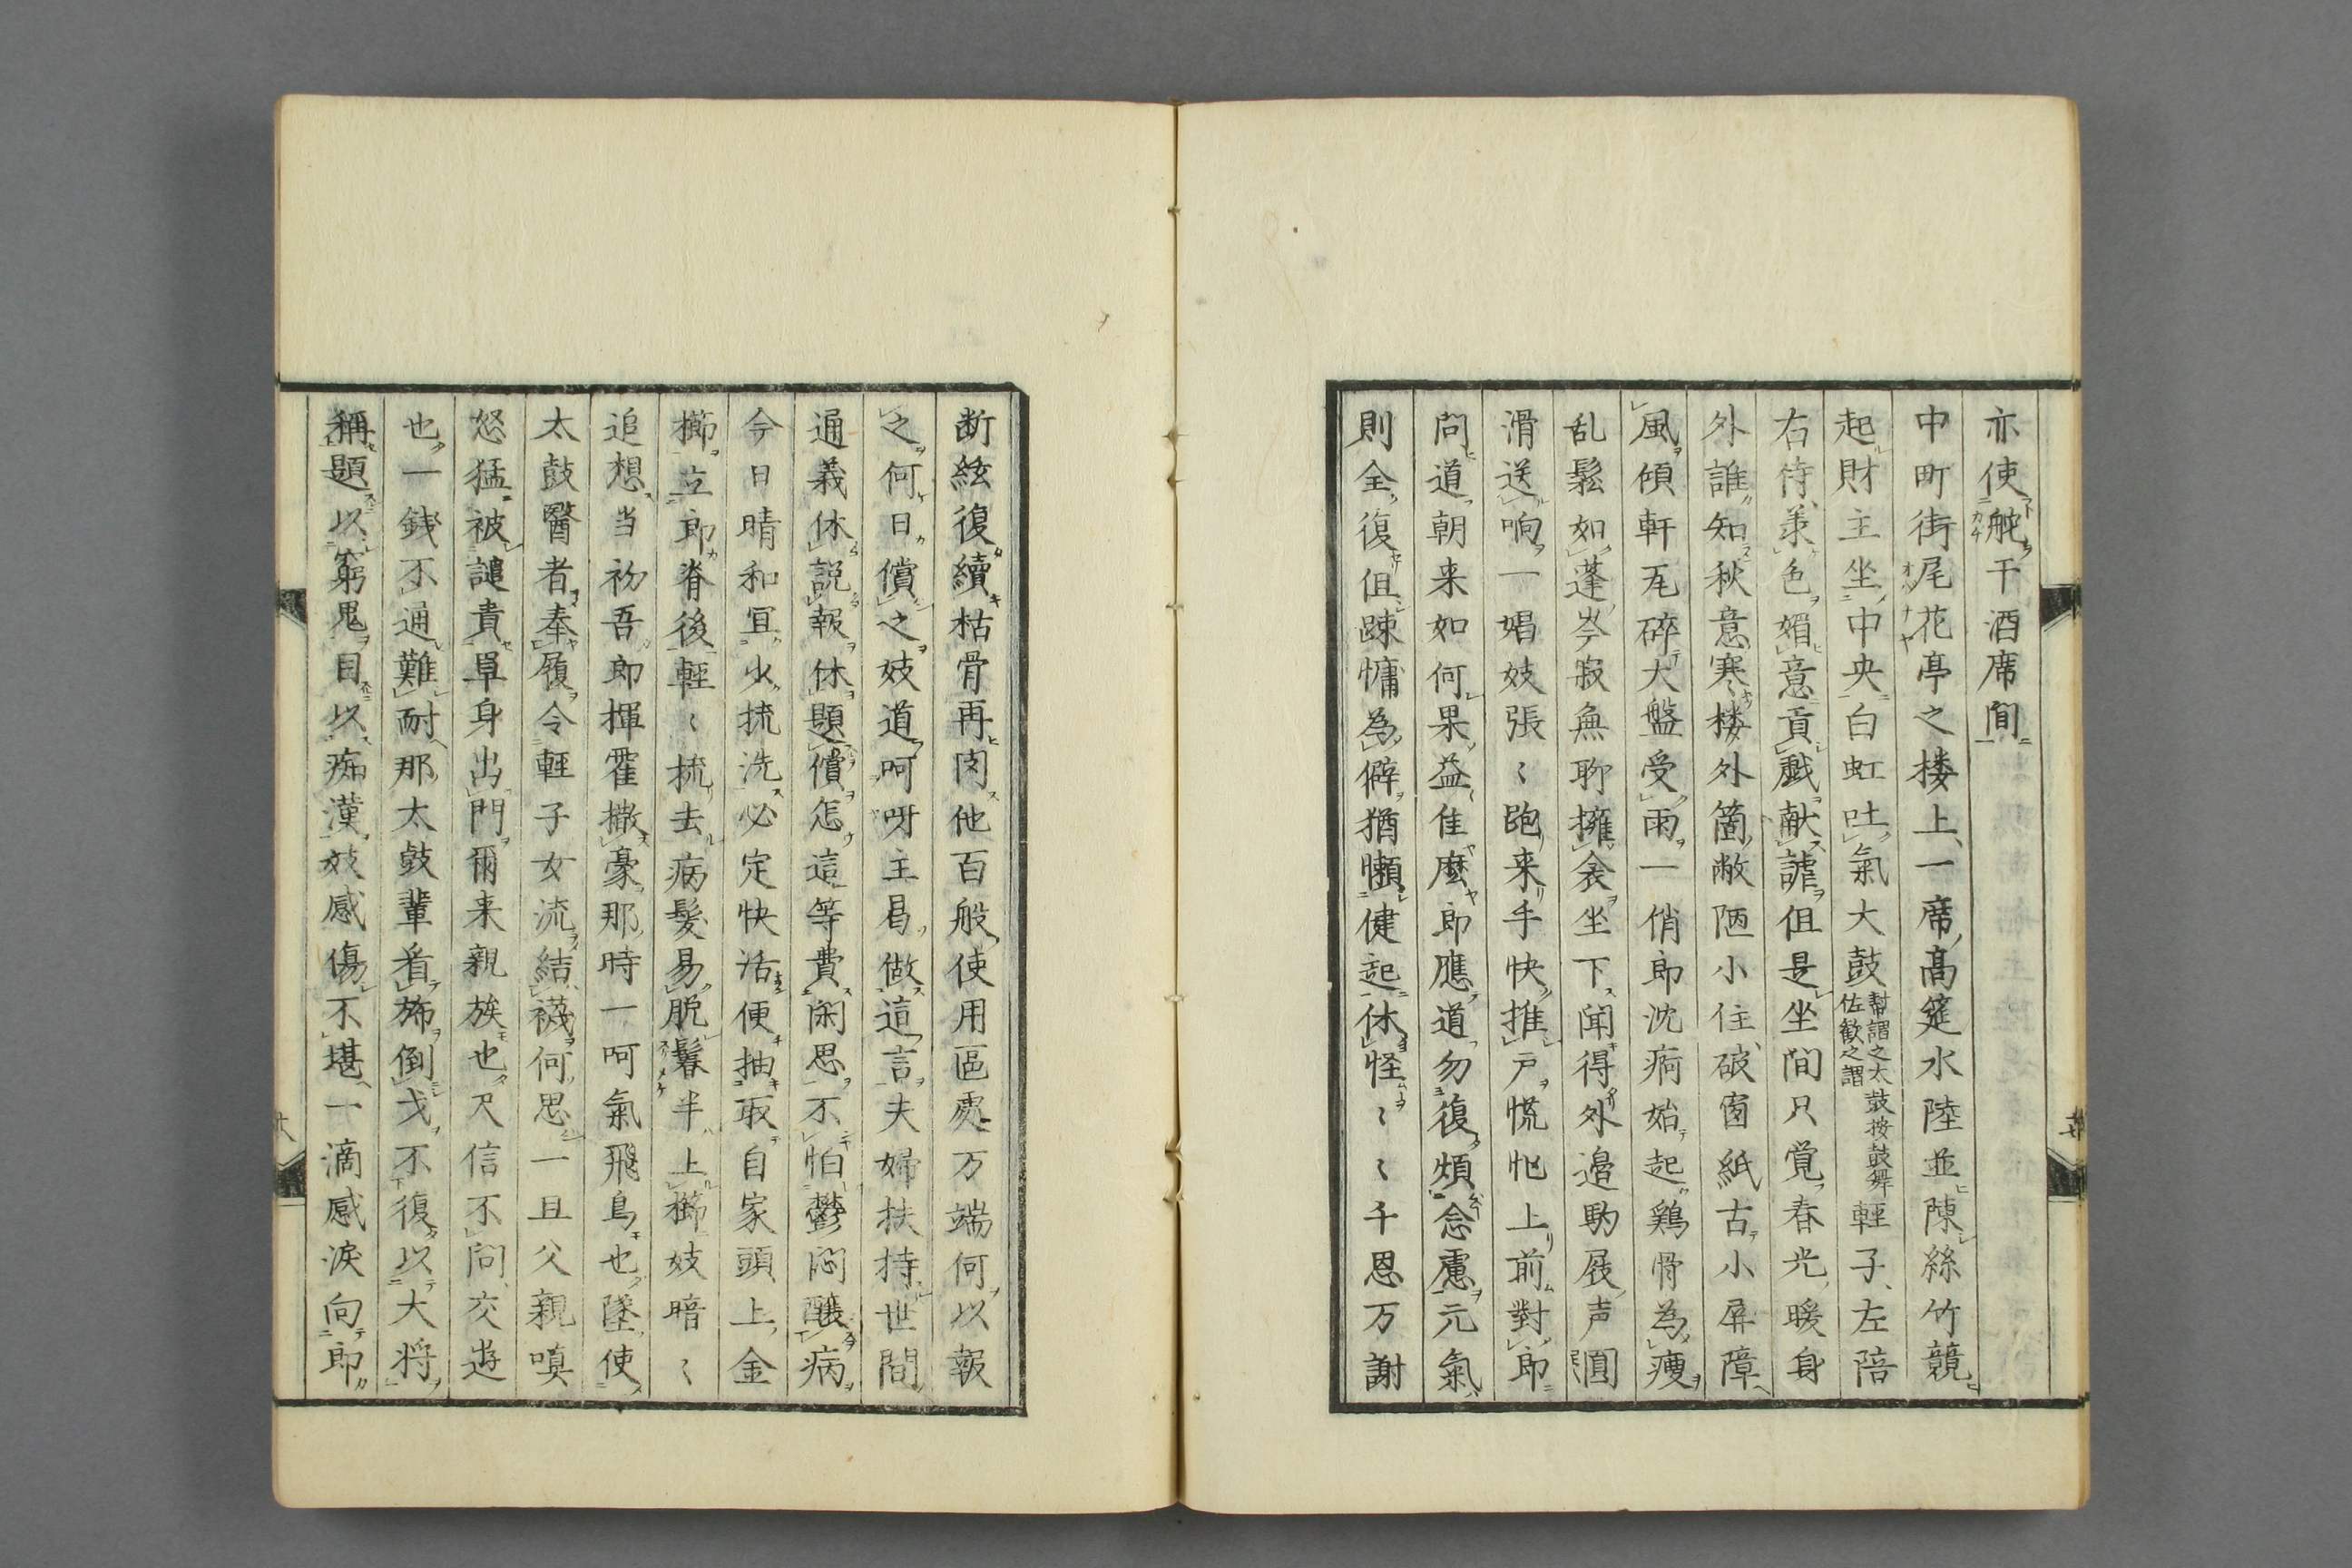 亦使舵于酒席間
中町街尾花亭之楼上一席高筵水陸並陳絲竹競
起財主坐中央白虹吐氣大鼓幇謂之太鼓按鼓舞佐歓之謂軽子左陪
右侍羕色媚意貢戯献謔但是坐間只覚春光暖身
外誰知秋意寒楼外箇敝陋小住破窗紙古小屏障
風傾軒瓦碎大盤受雨一俏郎沈痾始起鶏骨為痩
乱鬆如蓬岑寂無聊擁衾坐下聞得外邉駒屐声圓
滑送响一娼妓張〻跑来手快推戸慌忙上前對郎
問道朝来如何果益佳麼郎應道勿復煩念慮元氣
則全復但踈慵為僻猶懶健起休怪〻〻千恩万謝
断絃復續枯骨再肉他百般使用區處万端何以報
之何日償之妓道呵呀主曷做這言夫婦扶持世間
通義休説報休題償怎這等費閑思不怕鬱悶釀病
今日晴和宜火梳洗必定快活便抽取自家頭上金
櫛立郎脊後軽〻梳去病髪易脱鬈半上櫛妓暗〻
追想当初吾郎揮霍撒豪那時一呵氣飛鳥也墜使
太鼓醫者奉履令軽子女流結襪何思一旦父親嗔
怒猛被譴責单身出門爾来親族也尺信不问交遊
也一銭不通難耐那太鼓輩看旆倒戈不復以大将
稱題以窮鬼目以痴漢妓感傷不堪一滴感涙向郎